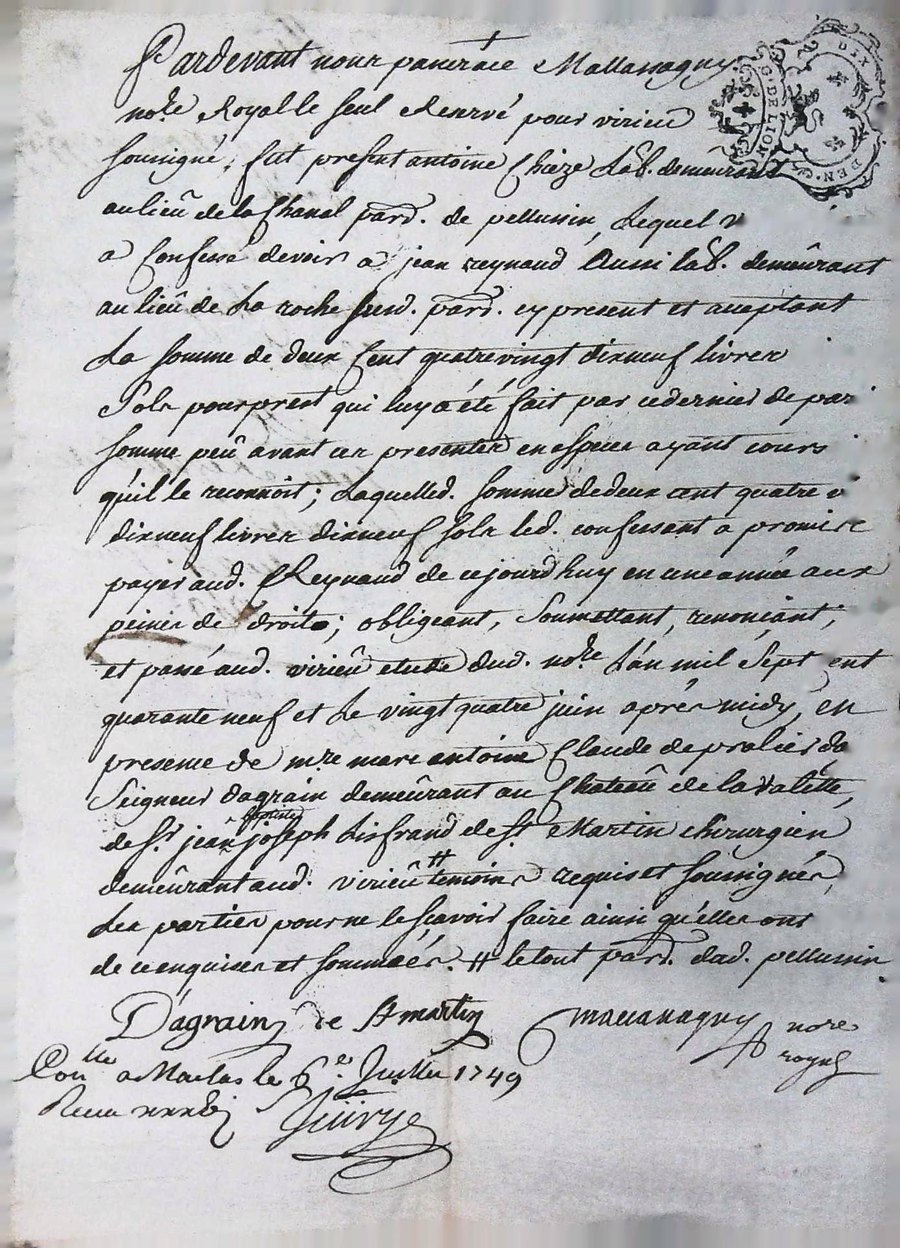 Pardevant nous pancrace Mallassagny
no.re Royal le seul Renrvé pour virieu
soussigné, fut present antoine Chieze Lab. demeurant
au lieu de la Chanal pard. de pellussin, Lequel
a Confessé devoir a jean reynaud Aussi lab. demeûrant
au lieû de La roche susd. pard. cy present et aceptant
La somme de deux Cent quatrevingt dixneuf livres
sols pour prest qui luy a été fait par ce dernier de par
somme peû avant ces presentes en espece ayant cours
qu'il le reconnoit; Laquelled. somme de deux cent quatre v
dixneuf livres dixneuf sols led. confessant a promis
payer aud. Reynaud de cejourdhuy en une année aux
peines de droit; obligeant, soumettant, renonçant;
et passé aud. virieû etude dud. no.re L'an mil sept ent
quarante neuf et Le vingt quatre juin aprés midy, en
presence de m.re marc antoine Claude de pralier
Seigneur dagrain demeûrant au Chateaû de la valette,
de S.r jean baptiste joseph Lisfrand de S.t Martin chirurgien
demeûrant aud. virieû # temoins requis et soussignés,
Les parties pour ne le sçavoir faire ainsi qu'elles ont
de ce enquises et sommées. # le tout pard. dud. pellussin
Dagrain de St martin Mallassagny no.re
royal
Con.lle a Maclas le 6.e Juillet 1749
Receu
G. DE LION
DIX
DEN.